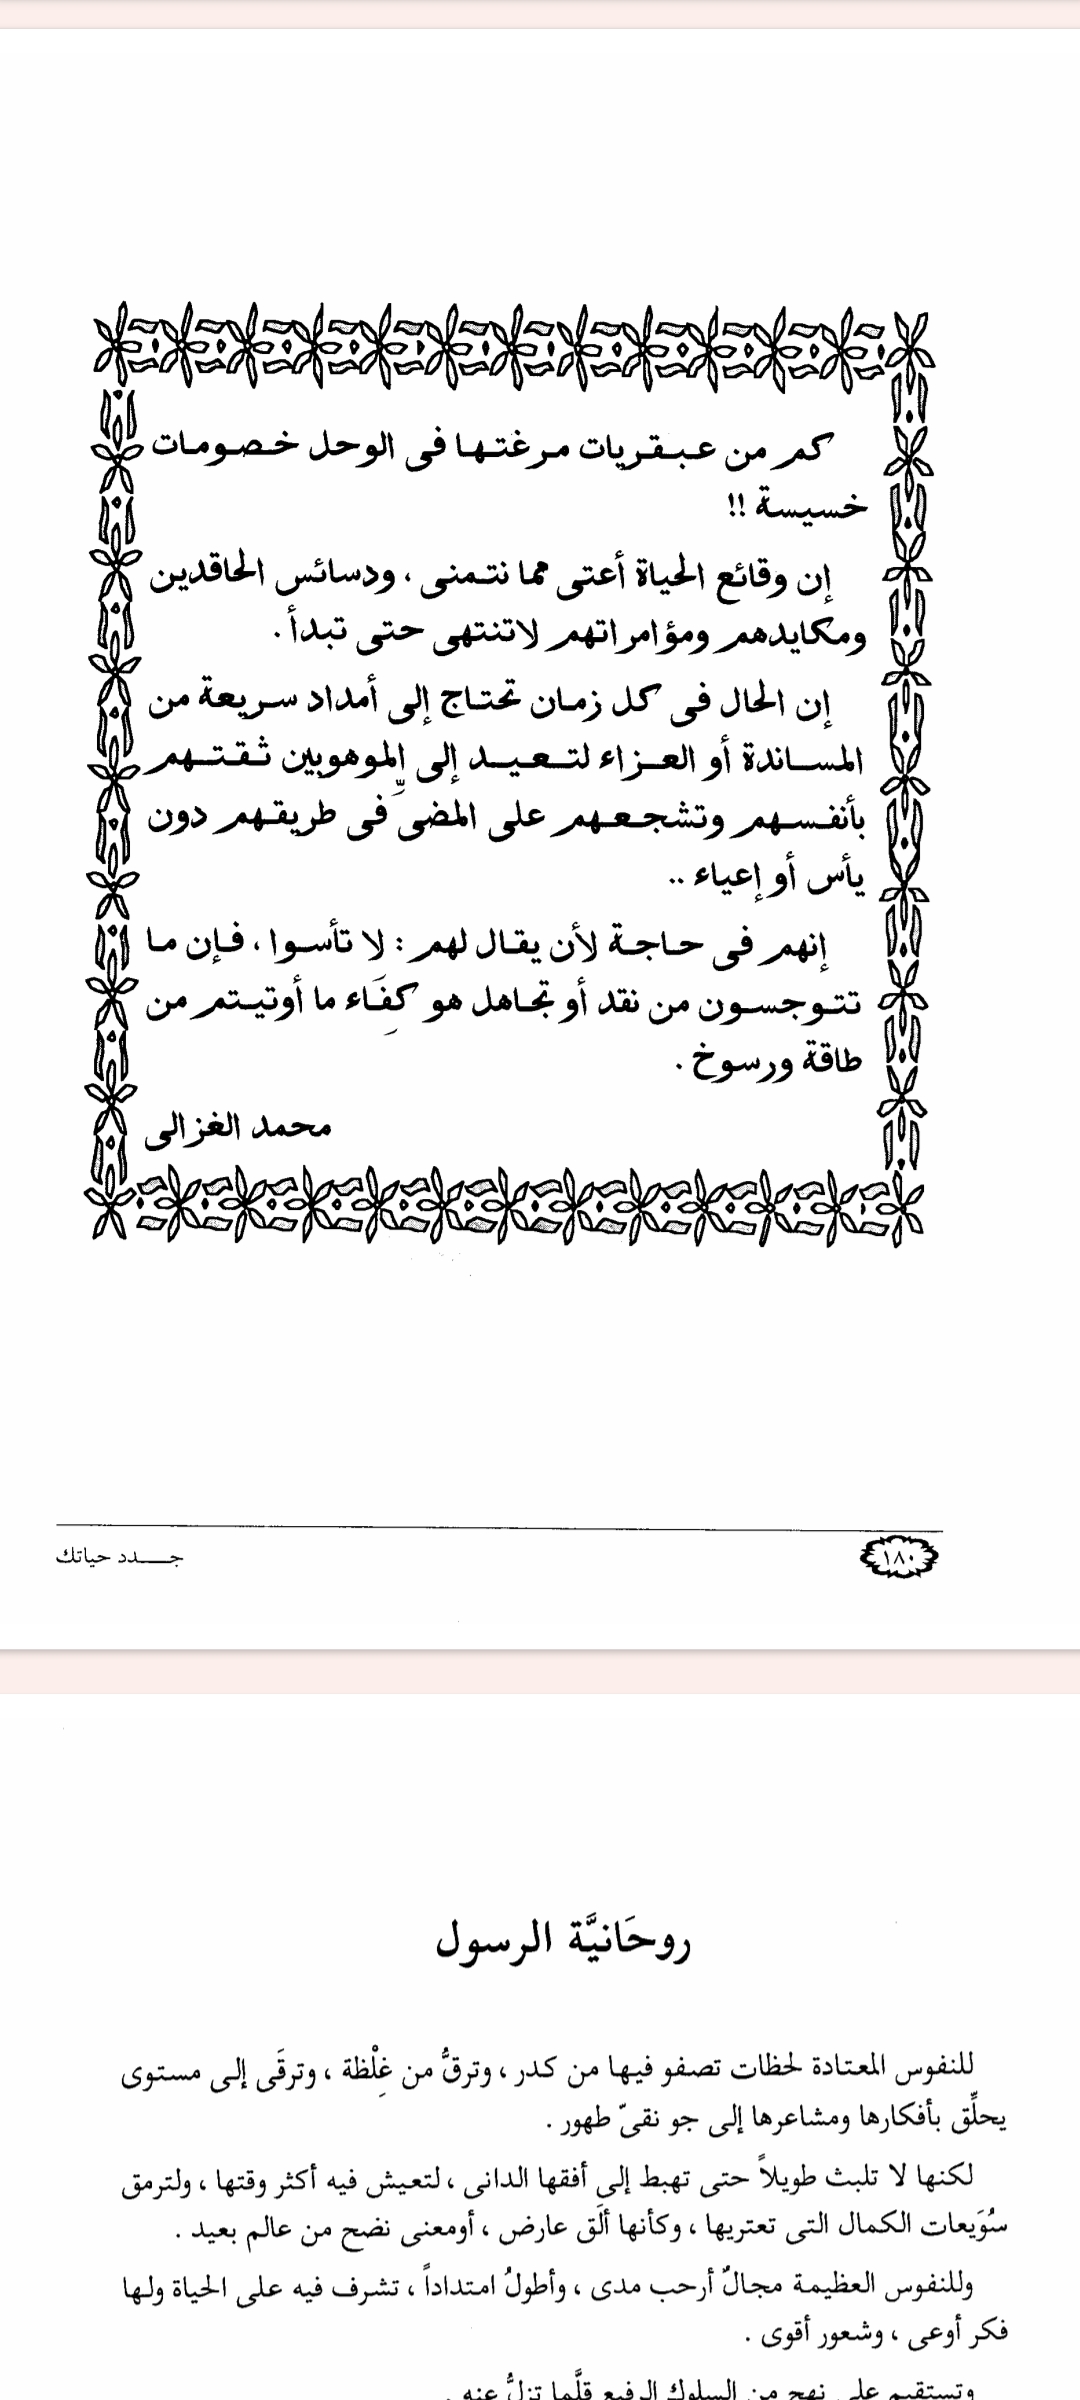 كم من عبقريات مرغتها فى الوحل خصومات
خسيسة !!
إن وقائع الحياة أعتى مما نتمنى ، ودسائس الحاقدين
ومكايدهم ومؤامراتهم لاتنتهى حتى تبدأ .
إن الحال فى كل زمان تحتاج إلى أمداد سريعة من
المساندة أو العزاء لتعيد إلى الموهوبين ثقتهم
بأنفسهم وتشجعهم على المضىِّ فى طريقهم دون
يأس أو إعياء ..
إنهم فى حاجة لأن يقال لهم : لا تأسوا ، فإن ما
تتوجسون من نقد أو تجاهل هو كِفَاء ما أوتيتم من
طاقة ورسوخ .
محمد الغزالى
١٨٠
جدد حياتك
روحَانيَّة الرسول
للنفوس المعتادة لحظات تصفو فيها من كدر ، وترقُّ من غِلْظة ، وترقَى إلى مستوى
يحلِّق بأفكارها ومشاعرها إلى جو نقىّ طهور .
لكنها لا تلبث طويلاً حتى تهبط إلى أفقها الدانى ، لتعيش فيه أكثر وقتها ، ولترمق
سُوَيعات الكمال التى تعتريها ، وكأنها ألَق عارض ، أومعنى نضح من عالم بعيد .
وللنفوس العظيمة مجالٌ أرحب مدى ، وأطولُ امتداداً ، تشرف فيه على الحياة ولها
فكر أوعى ، وشعور أقوى .
وتستقيم على نهج من السلوك الرفيع قلَّما تزلُّ عنه .